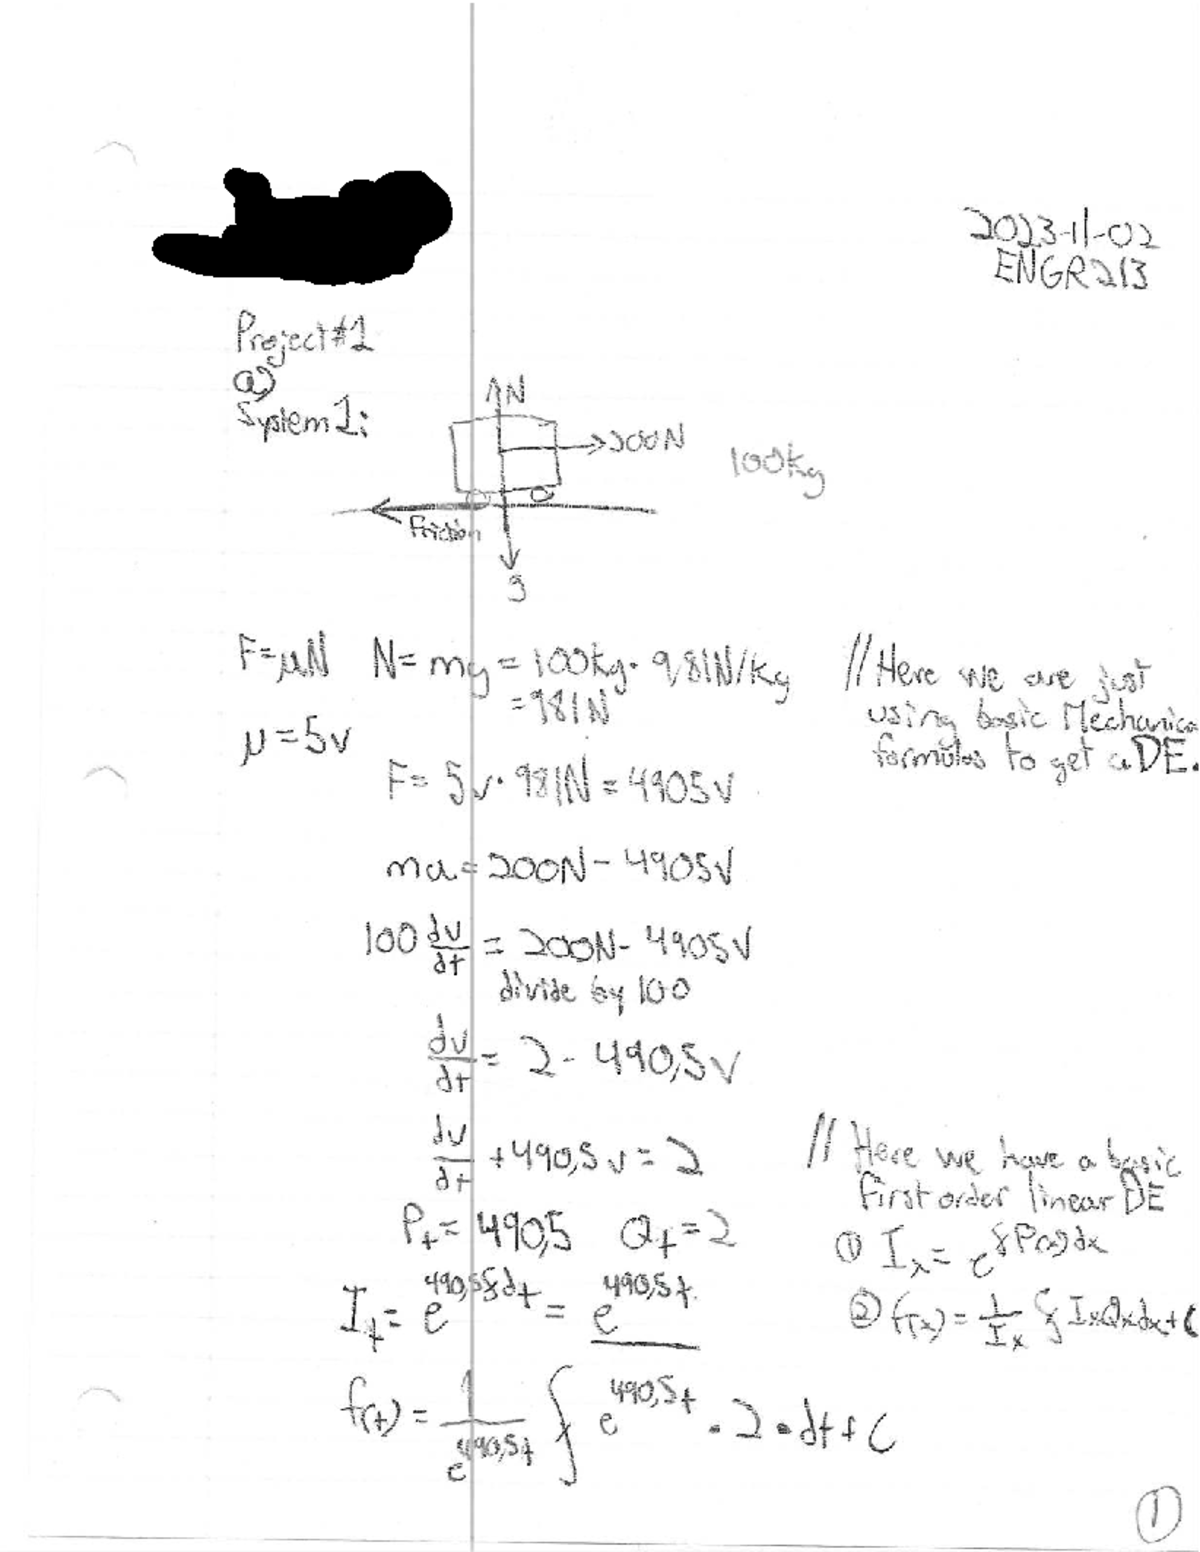 2023-11-02
ENGR213
Project#1
a)
System 1:
N
200N
100kg
Friction
g
F=μN N= mg = 100kg· 9,81N/kg
= 981N
// Here we are just
using basic Mechanica
formulas to get a DE.
μ = 5v
F= 5v· 981N = 4905v
ma = 200N - 4905v
100 dv/dt = 200N - 4905v
divide by 100
dv/dt = 2 - 490,5v
dv/dt + 490,5v = 2
// Here we have a basic
First order linear DE
P_t = 490,5 Q_t = 2
① I_x = e^∫P(x)dx
I_t = e^490,5∫dt = e^490,5t
② f(x) = 1/I_x ∫ IxQxdx+C
f(t) = 1/e^490,5t ∫ e^490,5t · 2 · dt + C
1